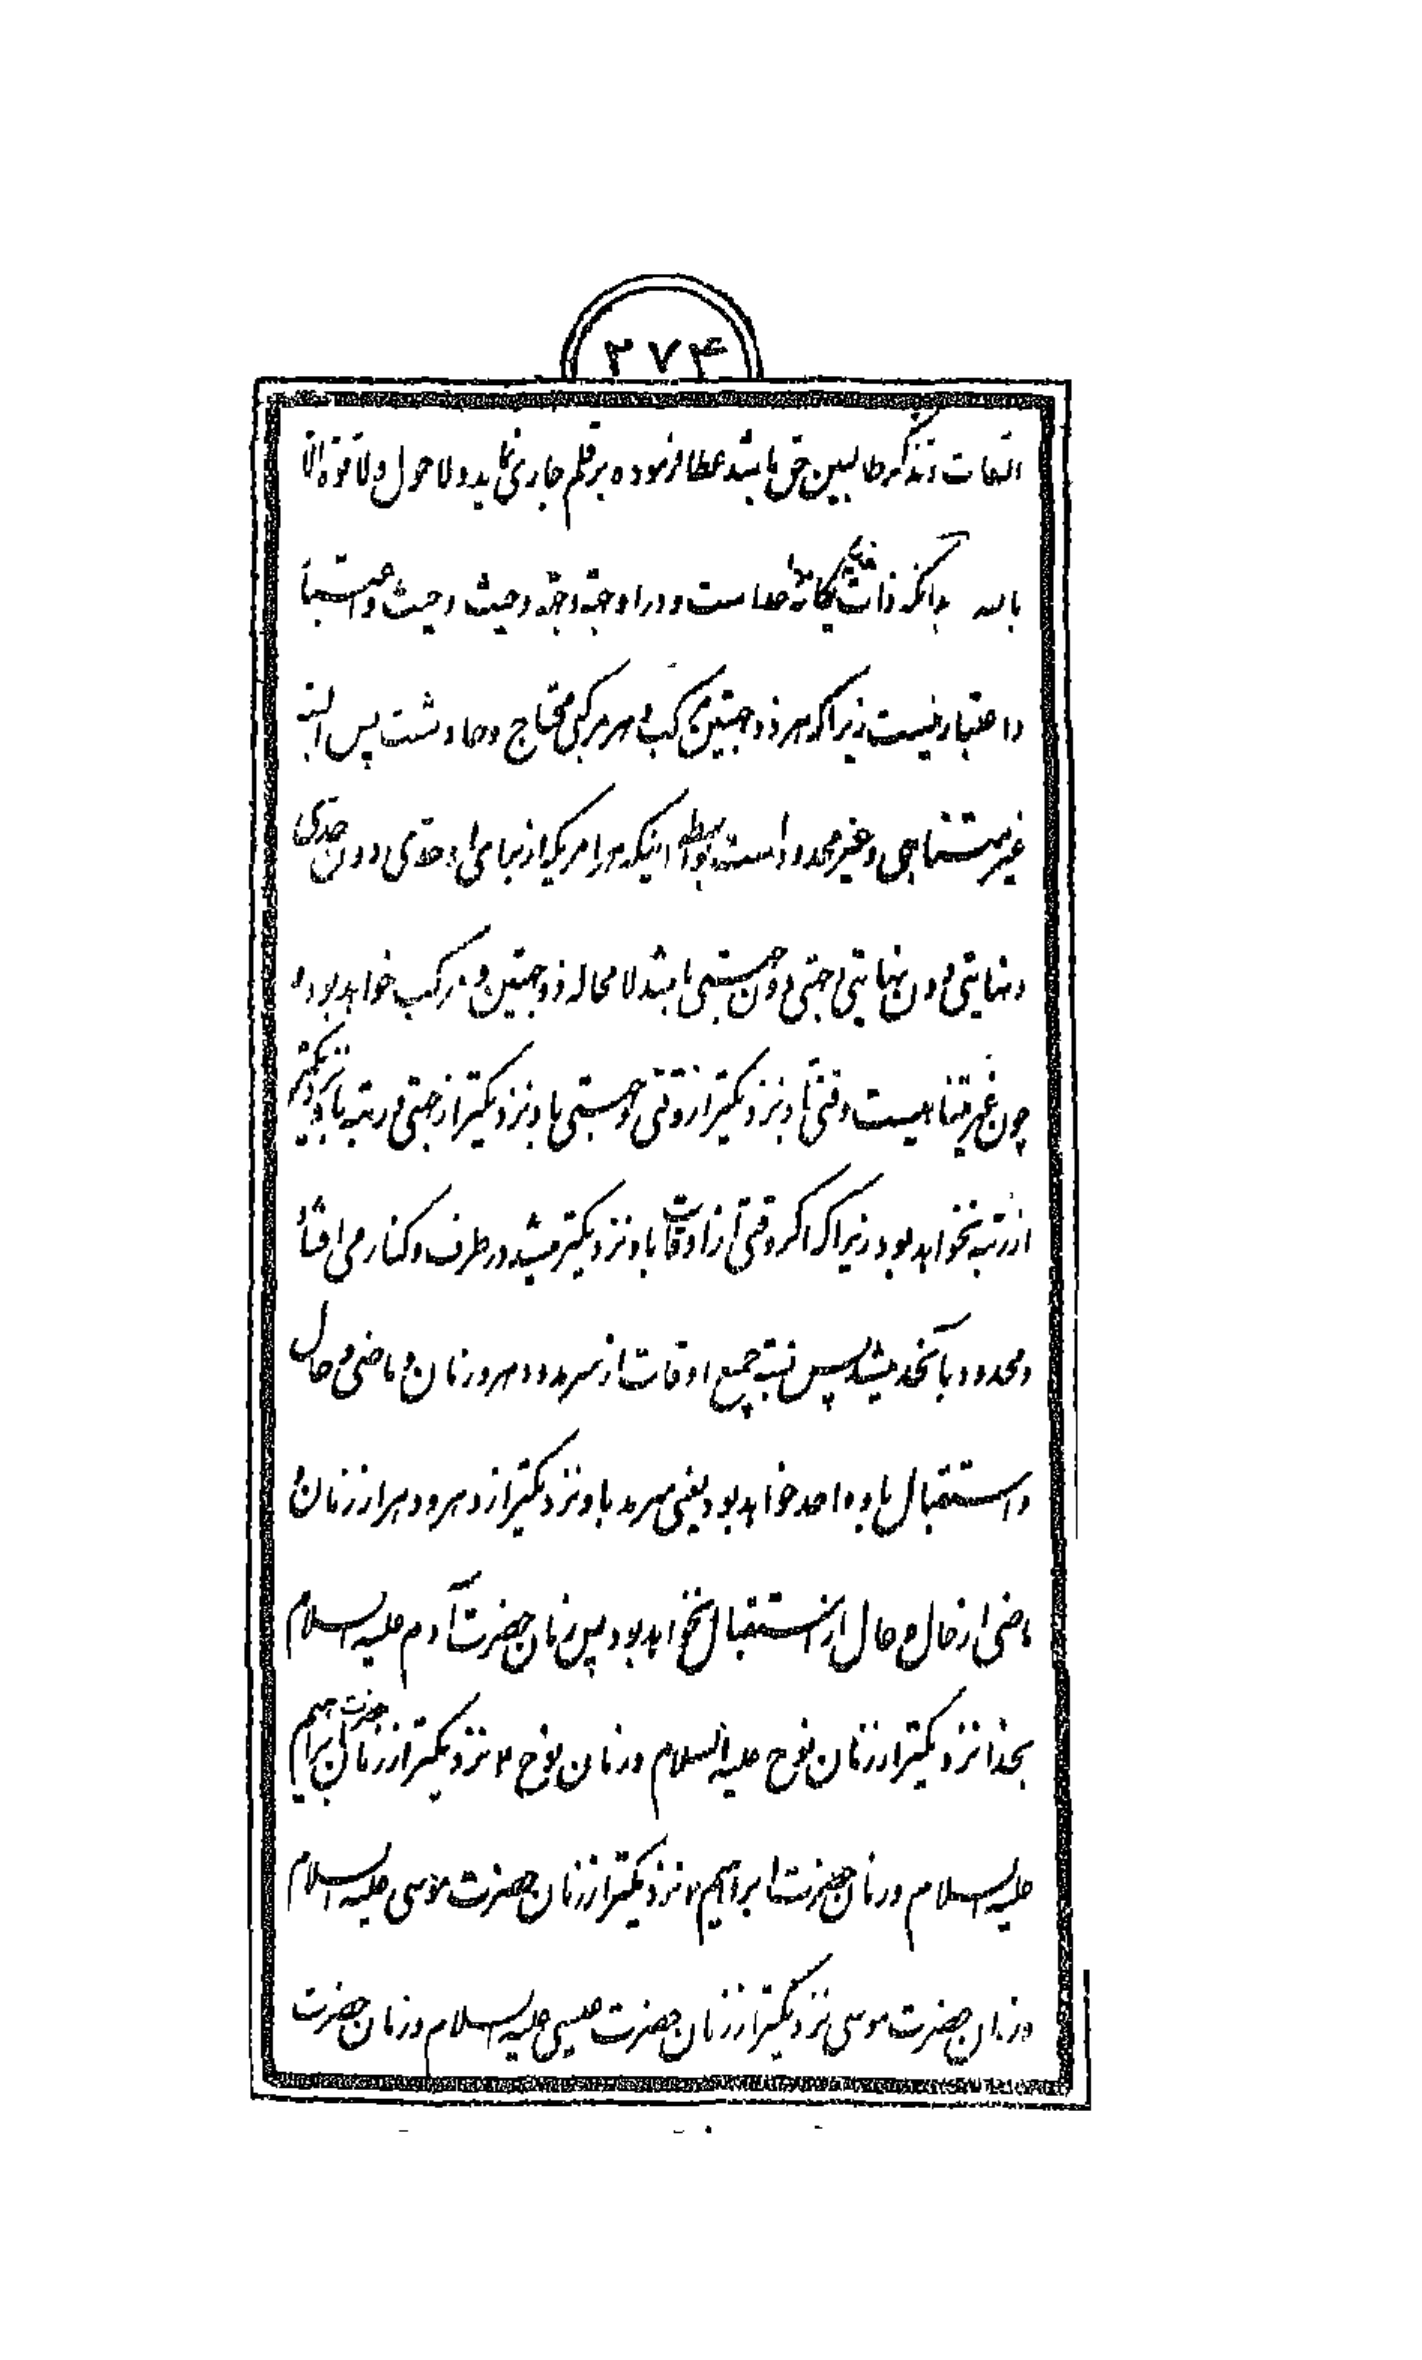 ۲۷۴
التفات و تذکر طالبین حق باشد عطا فرموده بر قلم جاری نماید و لا حول و لا قوة الا
بالله بدانکه ذات یگانه خداست و در او جهة و جهة و حیث و حیث و اعتبار
و اعتبار نیست زیرا که هر ذو جهتین مرکب و هر مرکبی محتاج و حادثست پس البته
غیر متناهی و غیر محدود است بواسطه اینکه هرامریکه از برای او حدی و دون حدی
و نهایتی و دون نهایتی و جهتی و دون جهتی باشد لا محاله ذو جهتین و مرکب خواهد بود و
چون غیر متناهیست وقتی باو نزدیکتر از وقتی و جهتی باو نزدیکتر از جهتی و رتبه باو نزدیکتر
از رتبه نخواهد بود زیرا که اگر وقتی از اوقات باو نزدیکتر میشد در طرف و کنار می افتاد
و محدود بآنحد میشد پس نسبة جمیع اوقات از سرمد و دهر و زمان و ماضی و حال
و استقبال باو واحد خواهد بود یعنی سرمد باو نزدیکتر از دهر و دهر از زمان و
ماضی از حال و حال از استقبال نخواهد بود پس زمان حضرت آدم علیه السلام
بخدا نزدیکتر از زمان نوح علیه السلام و زمان نوح ۴ نزدیکتر از زمان حضرت ابراهیم
علیه السلام و زمان حضرت ابراهیم ۴ نزدیکتر از زمان حضرت موسی علیه السلام
و زمان حضرت موسی نزدیکتر از زمان حضرت عیسی علیه السلام و زمان حضرت